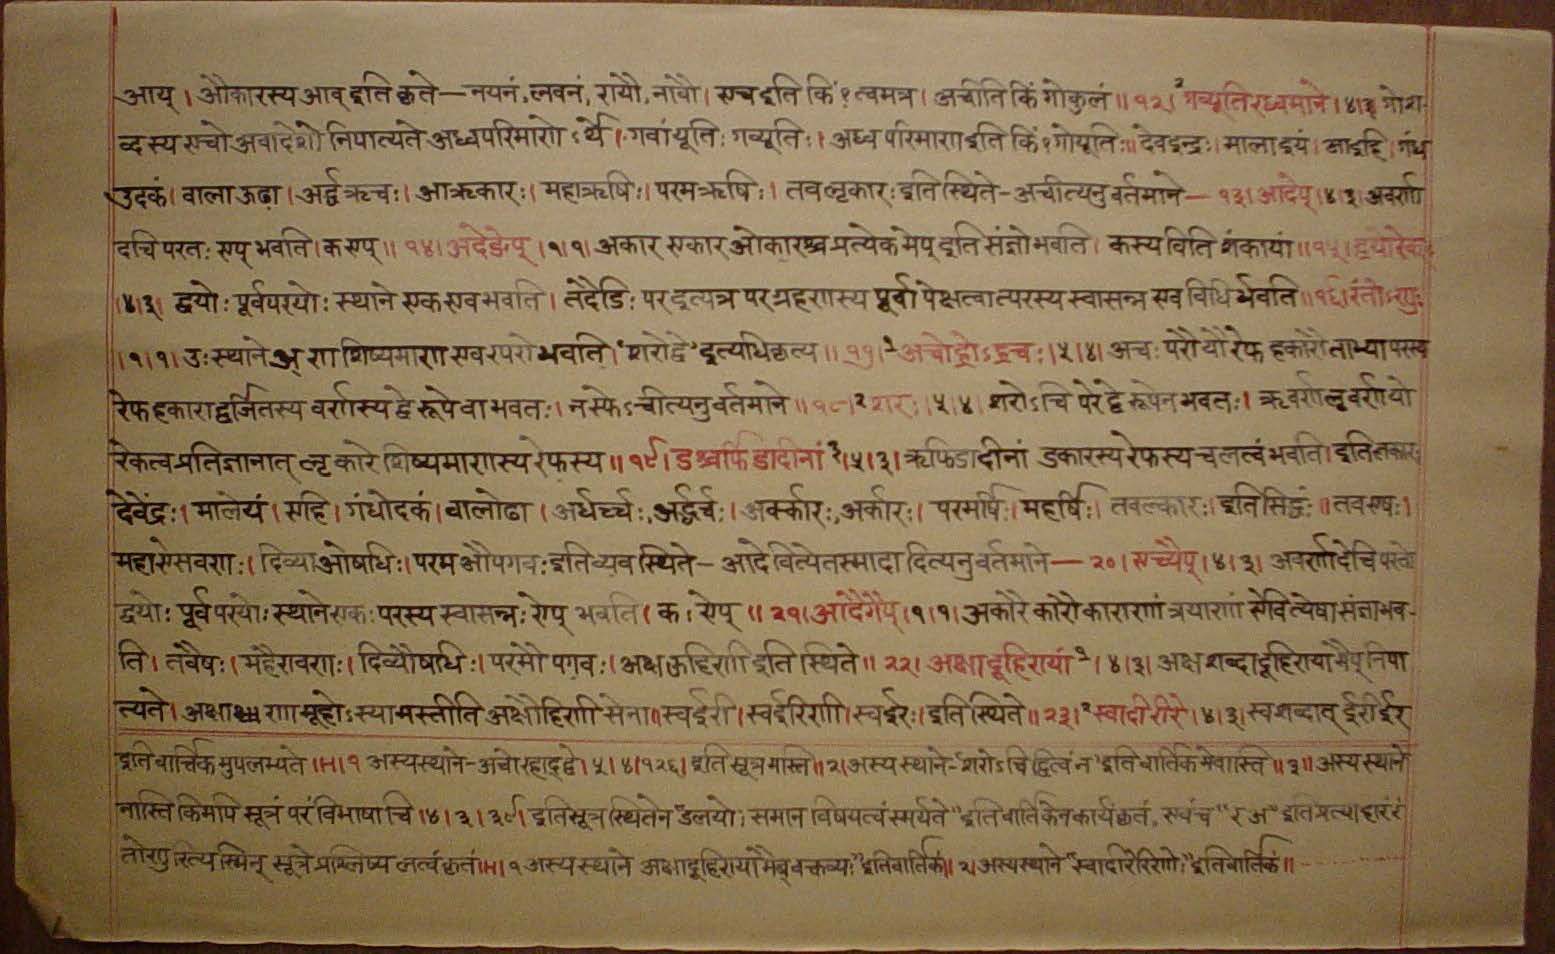 आय् । औकारस्य आव् इति कृते — नयनं, लवनं, रायौ, नावौ । एच इति किं ? त्वमत्र । अचीति किं गोकुलं ॥ १२ ।² गव्यूतिरध्वमाने । ४।३ गोश-
ब्दस्य एचो अवादेशो निपात्यते अध्वपरिमाणेऽर्थे । गवां यूतिः गव्यूतिः । अध्व परिमाण इति किं ? गोयूतिः ॥ देवइन्द्रः । मालाइयं । गंध
उदकं । वाला ऊढा । अर्द्धऋचः । आऋकारः । महाऋषिः । परमऋषिः । तवऌकारः इति स्थिते - अचीत्यनुवर्तमाने — १३ । आदेप् । ४।३ । अवर्णा
दचि परतः एप् भवति । क एप् ॥ १४ । अदेङेप् । १।१ । अकार एकार ओकारश्च प्रत्येकमेप् इति संज्ञो भवति । कस्यविति शंकायां ॥ १५ । द्वयोरेकः
।४।३। द्वयोः पूर्वपरयोः स्थाने एक एव भवति । तदैङिः पर इत्यत्र परग्रहणस्य पूर्वापेक्षत्वात्परस्य स्वासन्न एव विधिर्भवति ॥ १६ । रंतोऽणुः
।१।१। उः स्थाने अण् शिष्यमाण एव रपरो भवति । 'शरो द्वे' इत्यधिकृत्य ॥ १७ ।¹ अचो ह्रोऽह्रचः । ५।४। अचः परौ यौ रेफ हकारौ ताभ्यां परस्य
रेफहकाराद्वर्जितस्य वर्णस्य द्वे रूपे वा भवतः । नस्फेऽचीत्यनुवर्तमाने ॥ १८ ।² शरः । ५।४। शरोऽचि परे द्वे रूपे न भवतः । ऋवर्णऌवर्णयो
रेकत्वप्रतिज्ञानात् ऌकारे शिष्यमाणस्य रेफस्य ॥ १९ । डश्चर्फिडादीनां ³ । ५।३। ऋफिडादीनां डकारस्य रेफस्य च लत्वं भवति । इति लकारः
देवेंद्रः । मालेयं । एहि । गंधोदकं । वालोढा । अर्धर्च्चः, अर्द्धर्चः । अर्क्कारः, अर्कारः । परमर्षिः । महर्षिः । तवल्कारः । इति सिद्धं ॥ तवएषः ।
महाऐरावणः । दिव्या ओषधिः । परम औपगवः इति व्यवस्थिते - आदेवित्येतस्मादादित्यनुवर्तमाने — २० । एच्यैप् । ४।३। अवर्णादेचि परतो
द्वयोः पूर्वपरयोः स्थाने एकः परस्य स्वासन्नः ऐप् भवति । क ऐप् ॥ २१ । आदैगैप् । १।१। अकारैकारौकाराणां त्रयाणां ऐवित्येषा संज्ञा भव-
ति । तवैषः । महैरावणः । दिव्यौषधिः । परमौपगवः । अक्ष ऊहिणी इति स्थिते ॥ २२ । अक्षादूहिण्यां ¹ । ४।३। अक्षशब्दादूहिण्यामैप् निपा
त्यते । अक्षाणामूहोऽस्यामस्तीति अक्षौहिणी सेना । स्वईरी । स्वईरिणी । स्वईरः । इति स्थिते ॥ २३ ।² स्वादीरीरे । ४।३। स्वशब्दात् ईरी ईर
इति वार्त्तिकमुपलभ्यते ।म। १ अस्य स्थाने - अचो रहाद्द्वे । ५।४।१२६। इति सूत्रमस्ति ॥ २। अस्य स्थाने - "शरोऽचि द्वित्वं न" इति वार्तिकमेवास्ति ॥ ३॥ अस्य स्थाने
नास्ति किमपि सूत्रं परं विभाषाचि । ४।३।३९। इति सूत्र स्थितेन "डलयोः समान विषयत्वं स्मर्यते" इति वार्तिकेन कार्यं कृतं, एवं च "र अ" इति प्रत्याहारं रं
तोणुरित्यस्मिन् सूत्रे प्रश्लिष्य लत्वं कृतं ।म। १ अस्य स्थाने अक्षादूहिण्यामैब् वक्तव्यः" इति वार्तिकं । २। अस्य स्थाने "स्वादीरेरिणोः" इति वार्तिकं ॥